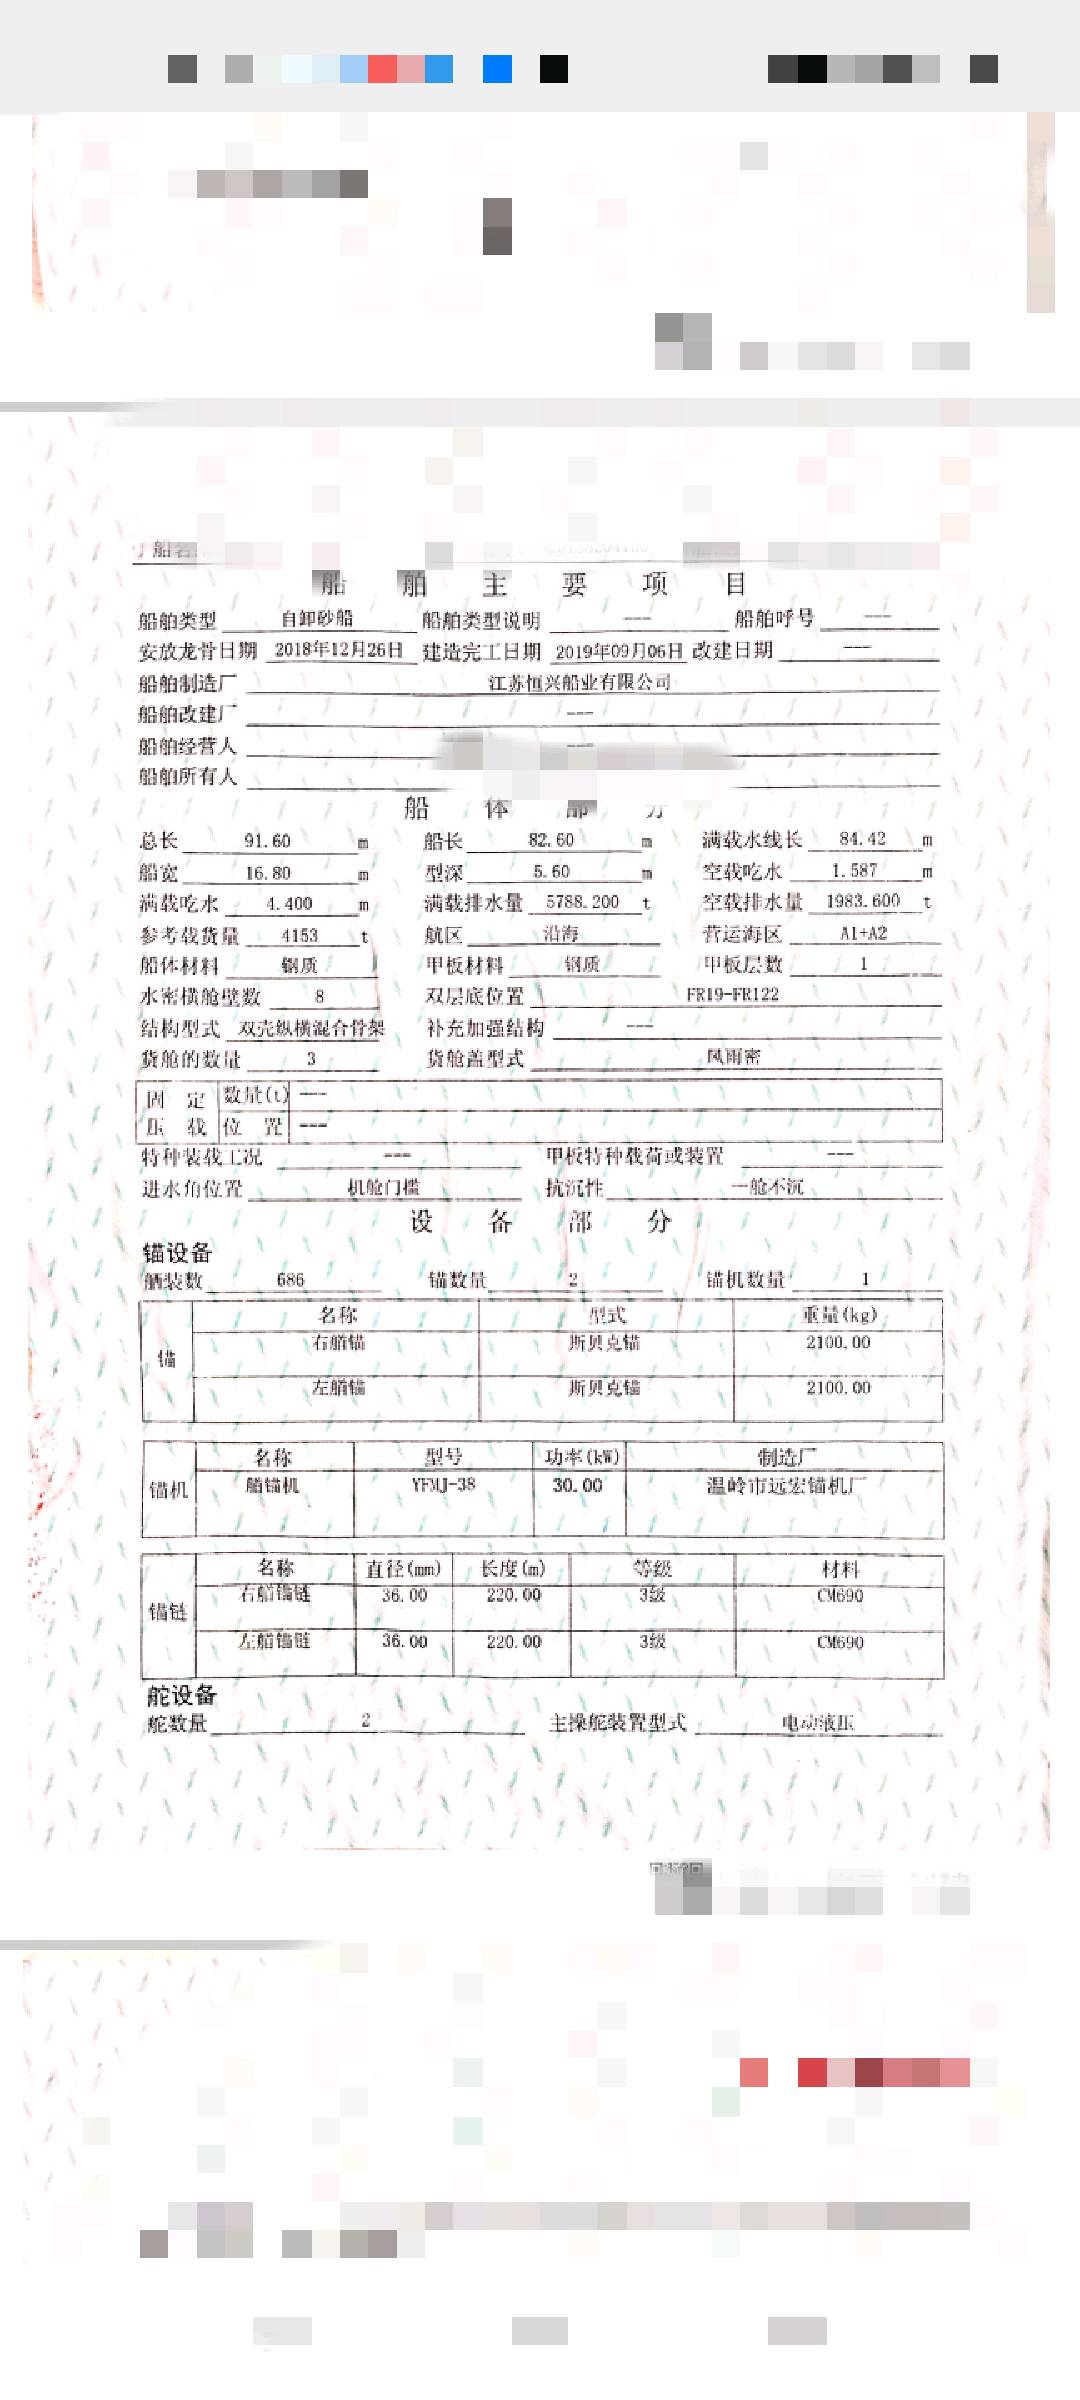 船舶主要项目
船舶类型 自卸砂船 船舶类型说明 --- 船舶呼号 ---
安放龙骨日期 2018年12月26日 建造完工日期 2019年09月06日 改建日期 ---
船舶制造厂 江苏恒兴船业有限公司
船舶改建厂 ---
船舶经营人 ---
船舶所有人
船体部分
总长 91.60 m 船长 82.60 m 满载水线长 84.42 m
船宽 16.80 m 型深 5.60 m 空载吃水 1.587 m
满载吃水 4.400 m 满载排水量 5788.200 t 空载排水量 1983.600 t
参考载货量 4153 t 航区 沿海 营运海区 A1+A2
船体材料 钢质 甲板材料 钢质 甲板层数 1
水密横舱壁数 8 双层底位置 FR19-FR122
结构型式 双壳纵横混合骨架 补充加强结构 ---
货舱的数量 3 货舱盖型式 风雨密
固定 数量(t) ---
压载 位置 ---
特种装载工况 --- 甲板特种载荷或装置 ---
进水角位置 机舱门槛 抗沉性 一舱不沉
设备部分
锚设备
舾装数 686 锚数量 2 锚机数量 1
名称 型式 重量(kg)
锚
右艏锚 斯贝克锚 2100.00
左艏锚 斯贝克锚 2100.00
名称 型号 功率(kW) 制造厂
锚机 艏锚机 YFMJ-38 30.00 温岭市远宏锚机厂
名称 直径(mm) 长度(m) 等级 材料
锚链
右艏锚链 36.00 220.00 3级 CM690
左艏锚链 36.00 220.00 3级 CM690
舵设备
舵数量 2 主操舵装置型式 电动液压